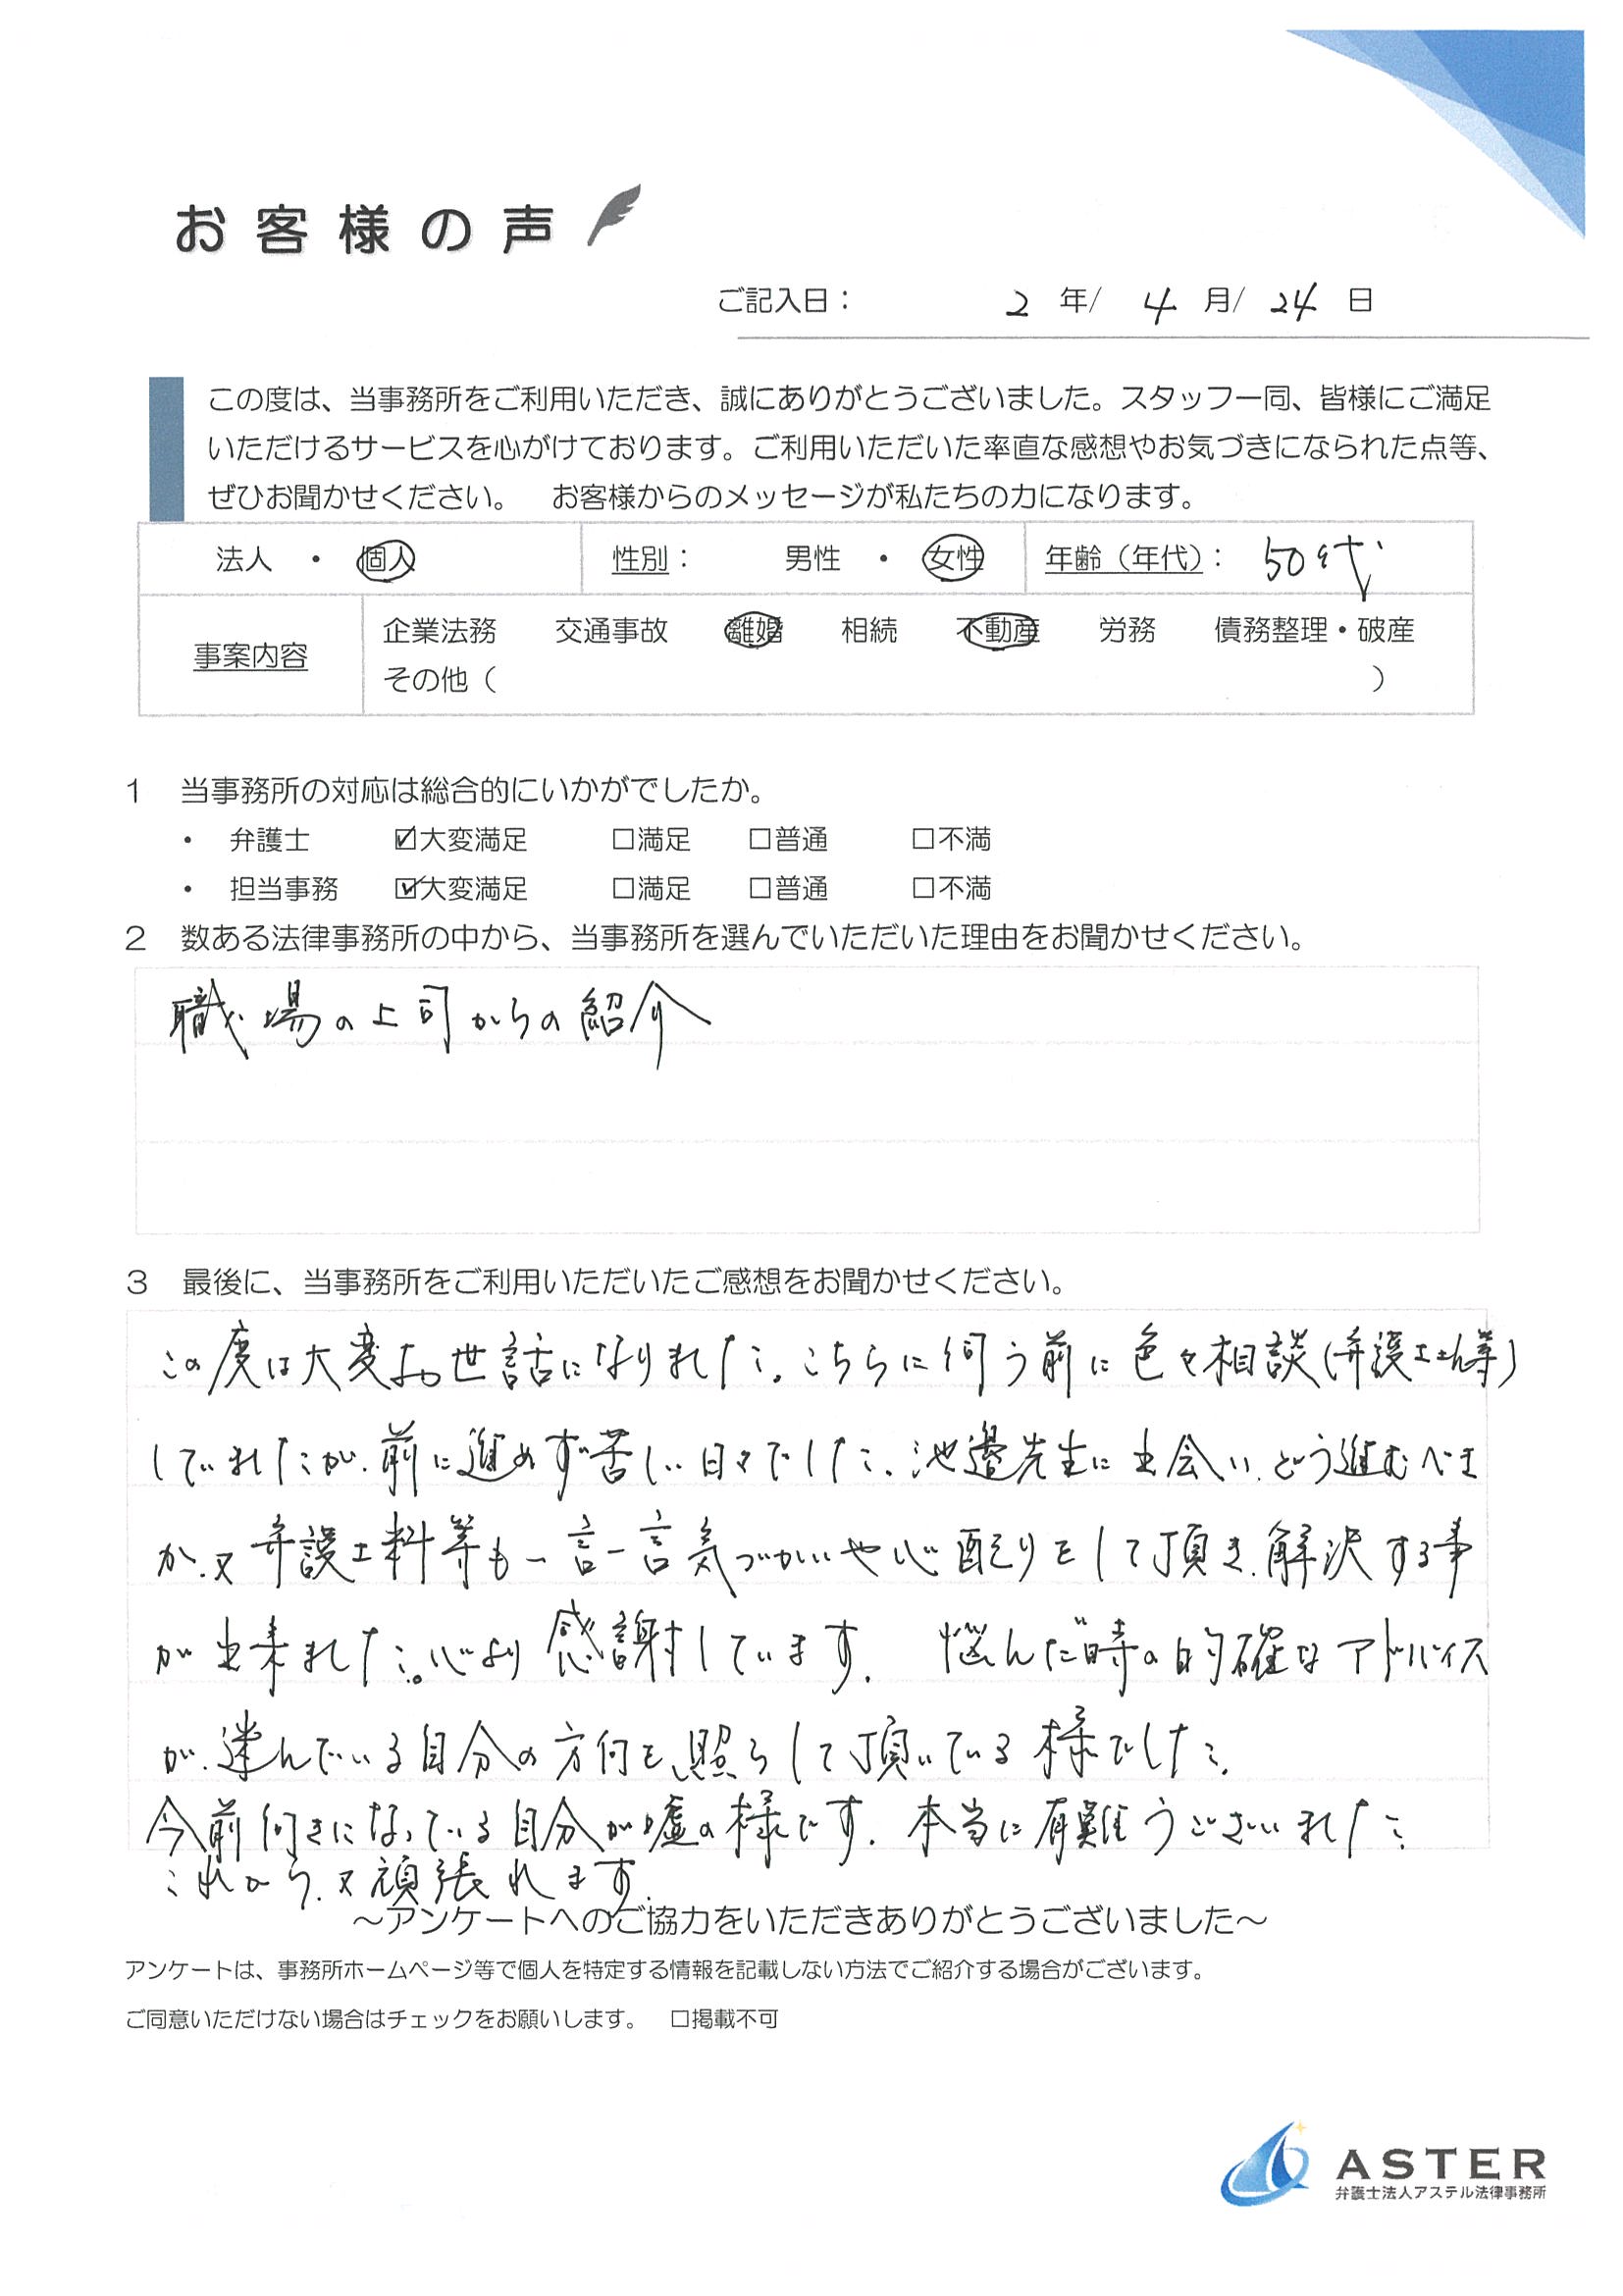 お客様の声
ご記入日： 2 年/ 4 月/ 24 日
この度は、当事務所をご利用いただき、誠にありがとうございました。スタッフ一同、皆様にご満足
いただけるサービスを心がけております。ご利用いただいた率直な感想やお気づきになられた点等、
ぜひお聞かせください。 お客様からのメッセージが私たちの力になります。
法人 ・ 個人 性別： 男性 ・ 女性 年齢（年代）： 50代
事案内容 企業法務 交通事故 離婚 相続 不動産 労務 債務整理・破産
その他（ ）
1 当事務所の対応は総合的にいかがでしたか。
・ 弁護士 ☑大変満足 □満足 □普通 □不満
・ 担当事務 ☑大変満足 □満足 □普通 □不満
2 数ある法律事務所の中から、当事務所を選んでいただいた理由をお聞かせください。
職場の上司からの紹介
3 最後に、当事務所をご利用いただいたご感想をお聞かせください。
この度は大変お世話になりました。こちらに伺う前に色々相談(弁護士さん等)
していましたが、前に進めず苦しい日々でした。池邊先生に出会い、どう進むべき
か、又弁護士料等も一言一言気づかいや心配りをして頂き、解決する事
が出来ました。心より感謝しています。 悩んだ時の的確なアドバイス
が、迷んでいる自分の方向を照らして頂いている様でした。
今前向きになっている自分が嘘の様です。本当に有難うございました。
これから、又頑張れます。
～アンケートへのご協力をいただきありがとうございました～
アンケートは、事務所ホームページ等で個人を特定する情報を記載しない方法でご紹介する場合がございます。
ご同意いただけない場合はチェックをお願いします。 □掲載不可
ASTER
弁護士法人アステル法律事務所